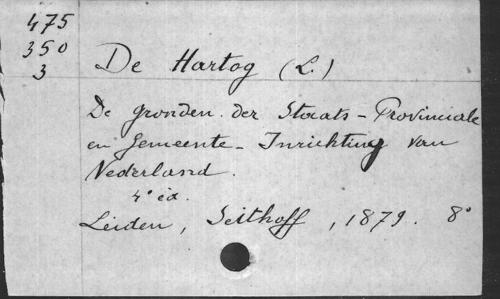 475
350
3
De Hartog (L.)
De gronden der Staats-Provinciale
en Gemeente-Inrichting van
Nederland.
4° éd.
Leiden, Seithoff, 1879. 8°